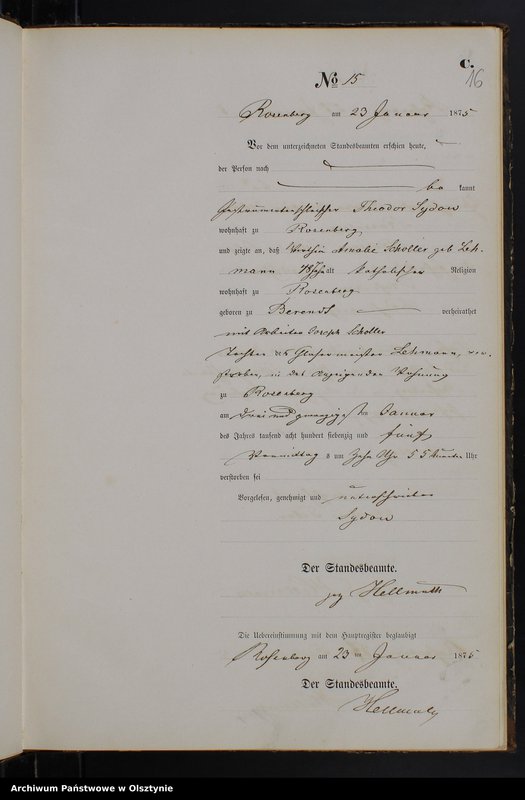 C.
16
No 15
Rosenberg am 23 Januar 1875
Vor dem unterzeichneten Standesbeamten erschien heute,
der Person nach
bekannt
Instrumentenschleifer Theodor Sydow
wohnhaft zu Rosenberg
und zeigte an, daß Bertha Amalie Scholler geb Leh-
mann 43 Jahr alt katholischer Religion
wohnhaft zu Rosenberg
geboren zu Berendt verheirathet
mit Arbeiter Joseph Scholler
Tochter des Glasermeister Lehmann, ver-
storben, in des Anzeigenden Wohnung
zu Rosenberg
am drei und zwanzigsten Januar
des Jahres tausend acht hundert siebenzig und fünf
Vormittags um Zehn Uhr 55 Minuten Uhr
verstorben sei
Vorgelesen, genehmigt und unterschrieben
Sydow
Der Standesbeamte.
gez Hellmuth
Die Uebereinstimmung mit dem Hauptregister beglaubigt
Rosenberg am 23 ten Januar 1875
Der Standesbeamte.
Hellmuth
Archiwum Państwowe w Olsztynie